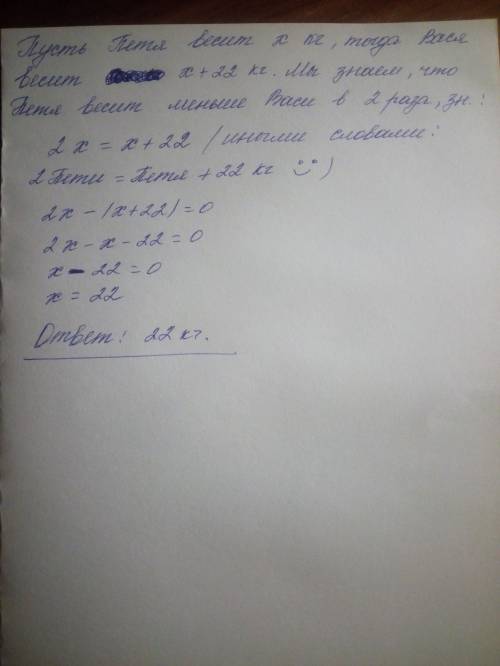 Пусть Петя весит x кг, тогда Вася
весит x + 22 кг. Мы знаем, что
Петя весит меньше Васи в 2 раза, зн.:
2x = x + 22 (иными словами:
2 Пети = Петя + 22 кг ☺)
2x - (x + 22) = 0
2x - x - 22 = 0
x - 22 = 0
x = 22
Ответ: 22 кг.